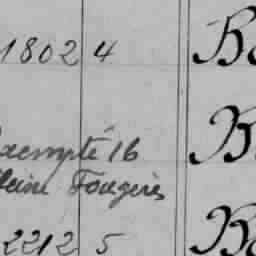 1802 4 Be
exempté 16 B
Pleine Fougères
2212 5 Be